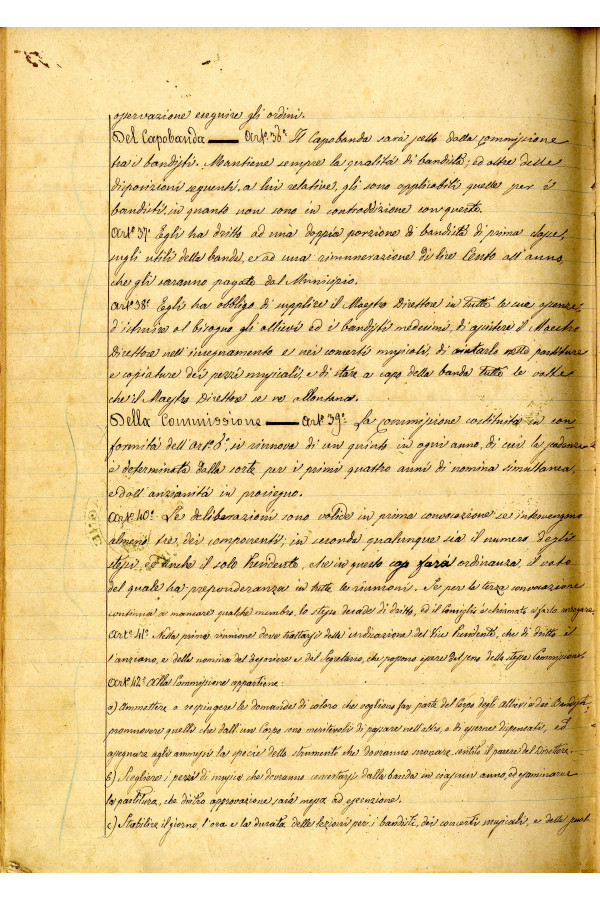 osservazione eseguire gli ordini.
Del Capobanda — Art.º 36º Il Capobanda sarà scelto dalla Commissione
tra i bandisti. Mantiene sempre la qualità di bandista; ed oltre delle
disposizioni seguenti, a lui relative, gli sono applicabili quelle per i
bandisti, in quanto non sono in contradizione con queste.
Art.º 37º Egli ha dritto ad una doppia porzione di bandista di prima classe,
sugli utili della banda, e ad una rimunerazione di lire Cento all'anno,
che gli saranno pagate dal Municipio.
Art.º 38º Egli ha obbligo di supplire il Maestro Direttore in tutte le sue assenze,
d'istruire al bisogno gli allievi ed i bandisti medesimi, di assistere il Maestro
Direttore nell'insegnamento e nei concerti musicali, di aiutarlo nelle partiture
e copiature dei pezzi musicali, e di stare a capo della banda tutte le volte
che il Maestro Direttore se ne allontana.
Della Commissione — Art.º 39º La Commissione costituita in con
formità dell'Art.º 6º, si rinnova di un quinto in ogni anno, di cui la scadenza
è determinata dalla sorte per i primi quattro anni di nomina simultanea,
e dall'anzianità in prosieguo.
Art.º 40º Le deliberazioni sono valide in prima convocazione se intervengono
almeno tre dei componenti; in seconda qualunque sia il numero degli
stessi, ed anche il solo Presidente, che in questo caso farà ordinanza, il voto
del quale ha preponderanza in tutte le riunioni. Se per la terza convocazione
continua a mancare qualche membro, lo stesso decade di dritto, ed il Consiglio è chiamato a farlo surrogare.
Art.º 41º Nella prima riunione deve trattarsi della indicazione del Vice Presidente, che di dritto è
l'anziano, e della nomina del Cassiere e del Segretario, che possono essere del seno della stessa Commissione.
Art.º 42º Alla Commissione appartiene:
a) Ammettere o respingere le domande di coloro che vogliono far parte del Corpo degli Allievi o dei Bandisti,
promuovere quelli che dall'un Corpo sono meritevoli di passare nell'altro, o di esserne dispensati, ed
assegnare agli ammessi la specie dello strumento che dovranno suonare, sentito il parere del Direttore.
b) Scegliere i pezzi di musica che dovranno concertarsi dalla banda in ciascun anno, ed esaminarne
la partitura, che dietro approvazione sarà messa ad esecuzione.
c) Stabilire il giorno, l'ora e la durata delle lezioni per i bandisti, dei concerti musicali, e delle